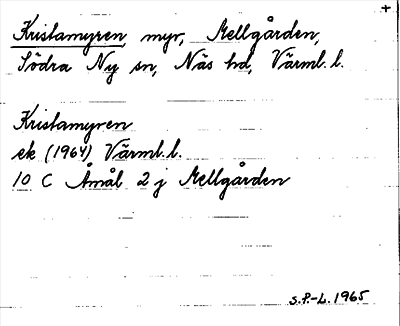 +
Kristamyren, myr, Mellgården,
Södra Ny sn, Näs hd, Värml. l.
Kristamyren
ek (1964) Värml. l.
10 C Åmål 2 j Mellgården
S.P.-L. 1965